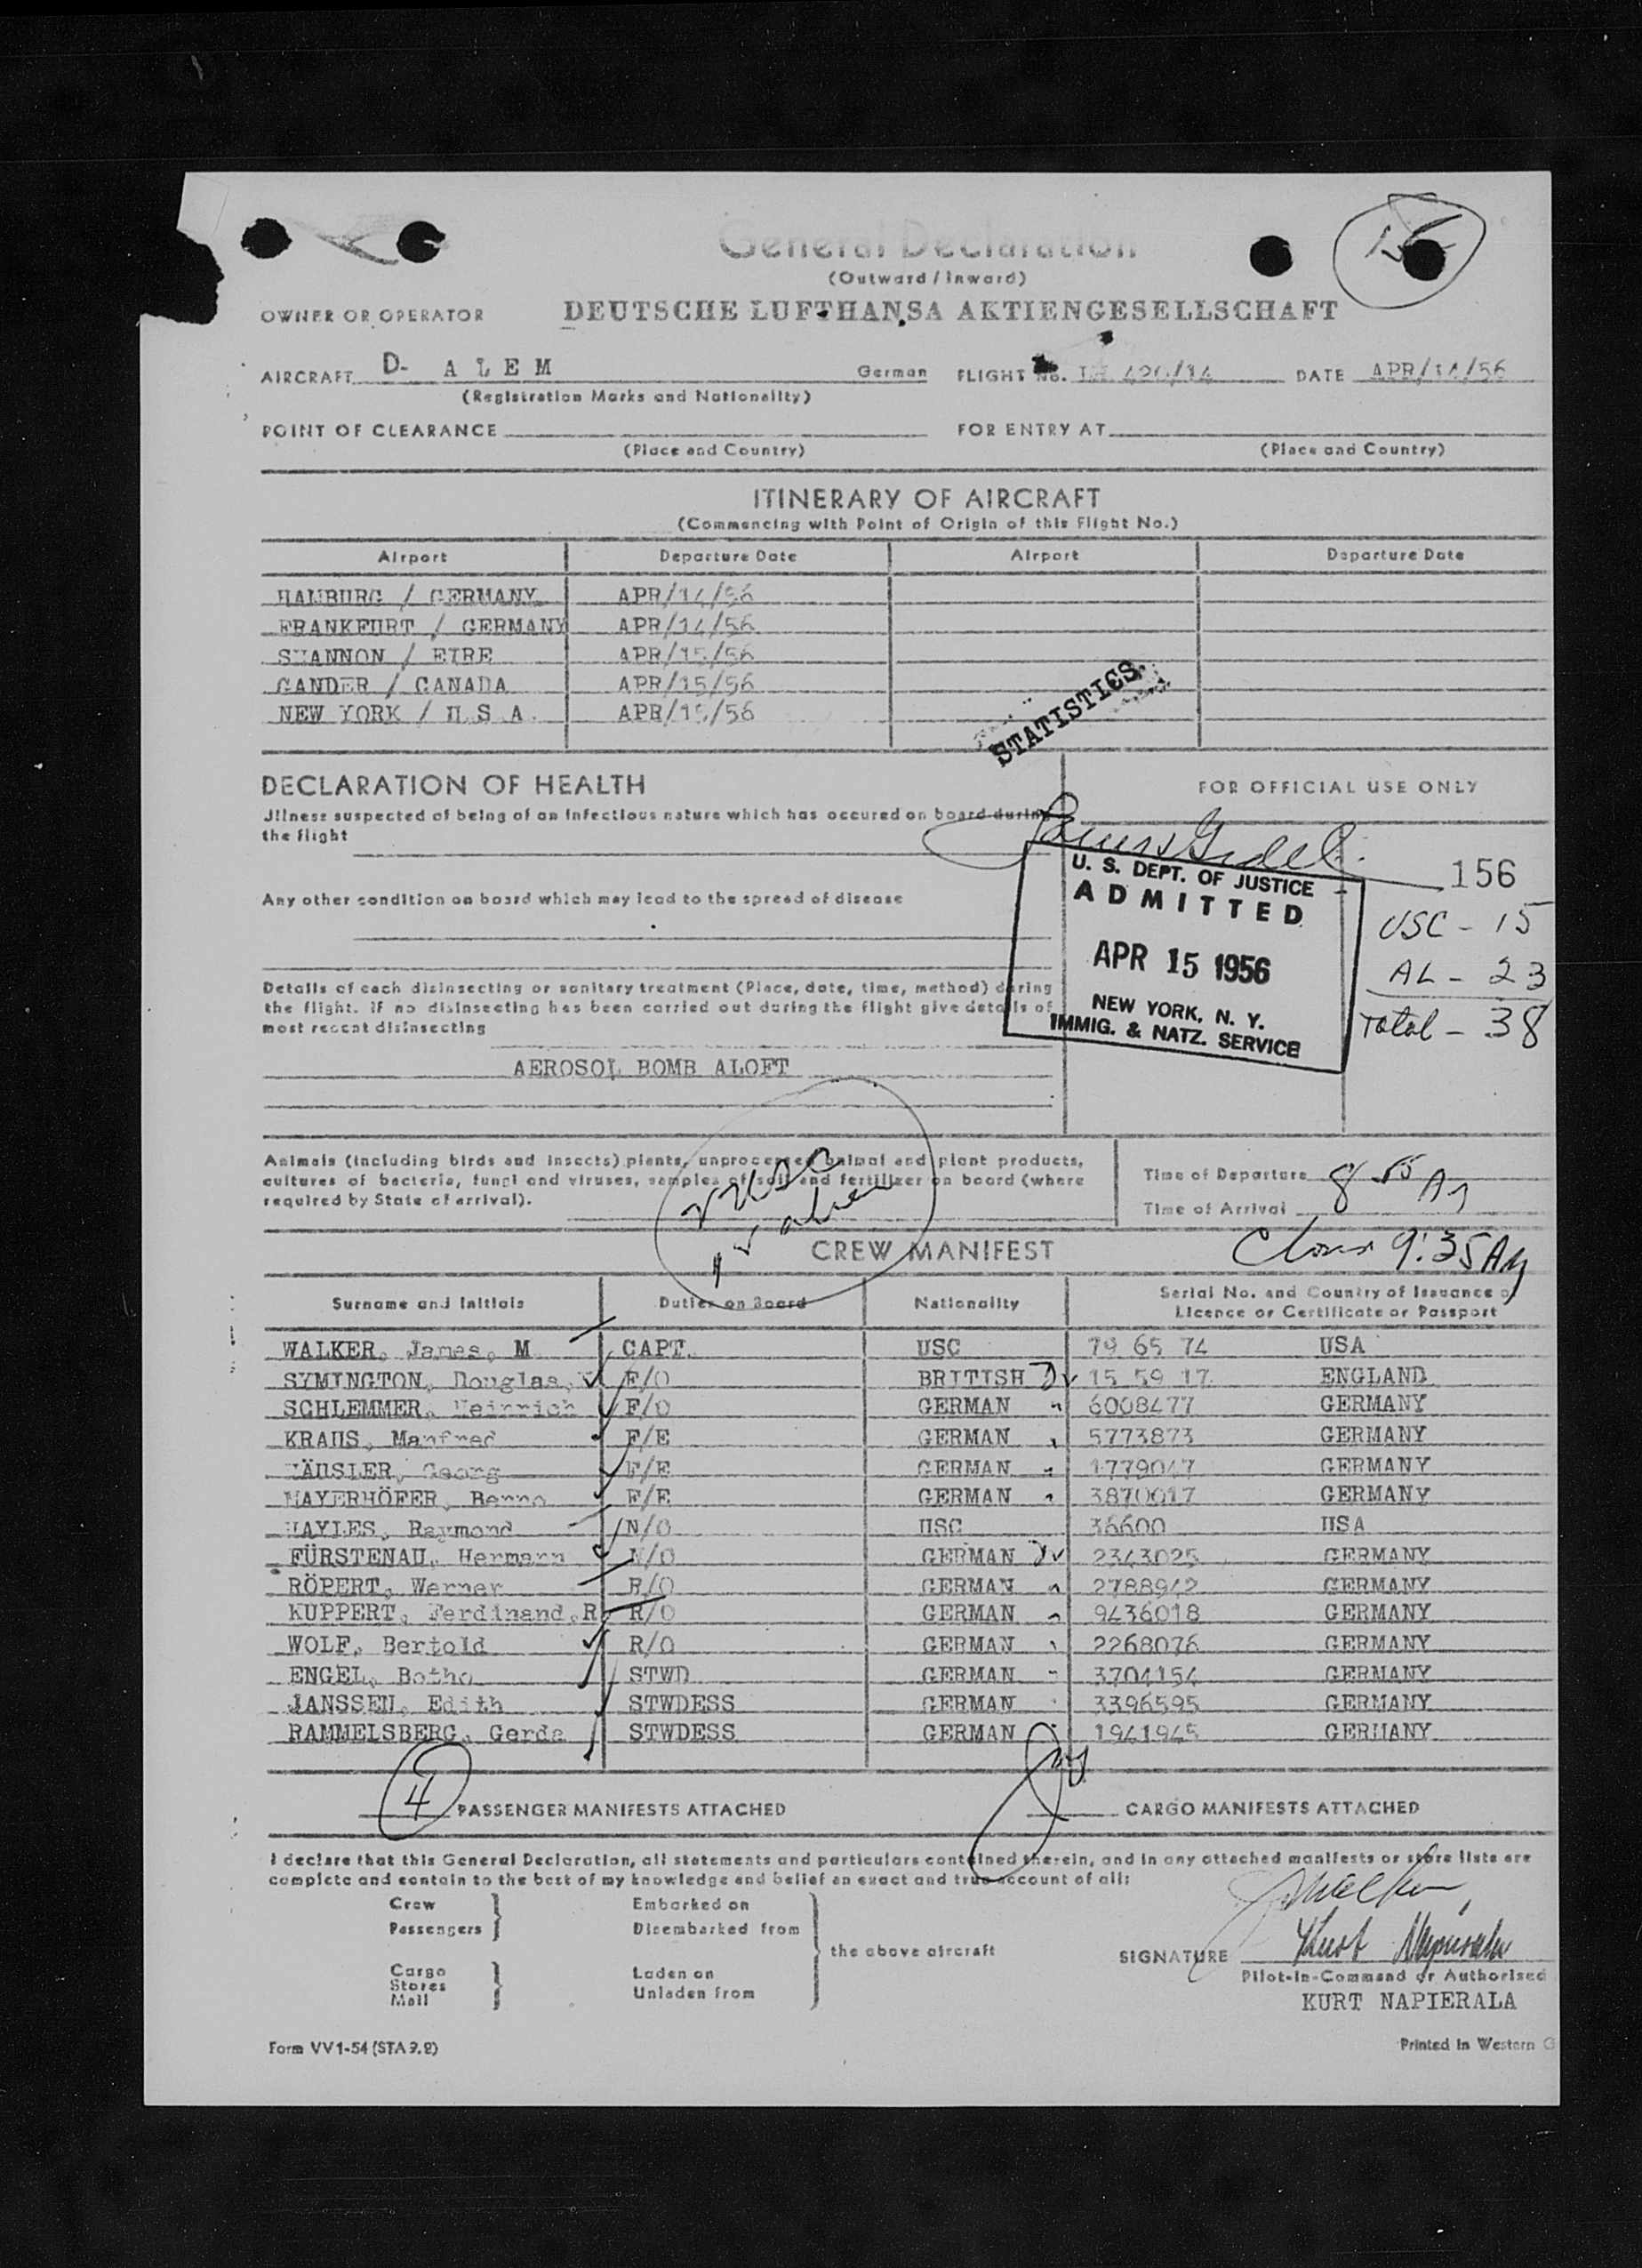 General Declaration
(Outward / Inward)
OWNER OR OPERATOR DEUTSCHE LUFTHANSA AKTIENGESELLSCHAFT
AIRCRAFT D- A L E M German FLIGHT No. LH 420/14 DATE APR/14/56
(Registration Marks and Nationality)
POINT OF CLEARANCE FOR ENTRY AT
(Place and Country) (Place and Country)
ITINERARY OF AIRCRAFT
(Commencing with Point of Origin of this Flight No.)
Airport Departure Date Airport Departure Date
HAMBURG / GERMANY APR/14/56
FRANKFURT / GERMANY APR/14/56
SHANNON / EIRE APR/15/56
GANDER / CANADA APR/15/56
NEW YORK / U S A. APR/15/56
STATISTICS
DECLARATION OF HEALTH
FOR OFFICIAL USE ONLY
Jllness suspected of being of an infectious nature which has occured on board during
the flight
156
Any other condition on board which may lead to the spread of disease
U. S. DEPT. OF JUSTICE
ADMITTED
APR 15 1956
NEW YORK, N. Y.
IMMIG. & NATZ. SERVICE
USC - 15
AL - 23
Total - 38
Details of each disinsecting or sanitary treatment (Place, date, time, method) during
the flight. if no disinsecting has been carried out during the flight give details of
most recent disinsecting
AEROSOL BOMB ALOFT
Animals (including birds and insects) plants, unprocessed animal and plant products,
cultures of bacteria, fungi and viruses, samples of soil and fertilizer on board (where
required by State of arrival).
Time of Departure
Time of Arrival 8 55 AM
9:35 AM
CREW MANIFEST
Surname and Initials Duties on Board Nationality Serial No. and Country of Issuance of
Licence or Certificate or Passport
WALKER, James, M CAPT. USC 79 65 74 USA
SYMINGTON, Douglas, F/O BRITISH 15 59 17 ENGLAND
SCHLEMMER, Heinrich F/O GERMAN 6008477 GERMANY
KRAUS, Manfred F/E GERMAN 5773873 GERMANY
HÄUSLER, Georg F/E GERMAN 1779047 GERMANY
MAYERHÖFER, Benno F/E GERMAN 3870017 GERMANY
HAYLES, Raymond N/O USC 36600 USA
FÜRSTENAU, Hermann N/O GERMAN 2343025 GERMANY
RÖPERT, Werner R/O GERMAN 2788942 GERMANY
KUPPERT, Ferdinand,R R/O GERMAN 9436018 GERMANY
WOLF, Bertold R/O GERMAN 2268076 GERMANY
ENGEL, Botho STWD GERMAN 3704154 GERMANY
JANSSEN, Edith STWDESS GERMAN 3396595 GERMANY
RAMMELSBERG, Gerda STWDESS GERMAN 1941945 GERMANY
4 PASSENGER MANIFESTS ATTACHED CARGO MANIFESTS ATTACHED
I declare that this General Declaration, all statements and particulars contained therein, and in any attached manifests or store lists are
complete and contain to the best of my knowledge and belief an exact and true account of all:
Crew Embarked on
Passengers Disembarked from
the above aircraft
Cargo Laden on
Stores Unladen from
Mail
SIGNATURE Kurt Napierala
Pilot-in-Command or Authorised
KURT NAPIERALA
Form VV 1-54 (STA 9.2)
Printed in Western G